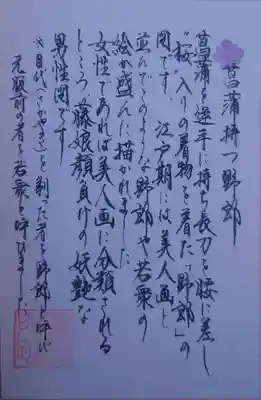 菖蒲持つ野郎
菖蒲を逆手に持ち長刀を腰に差し
"桜"入りの着物を着た「野郎」の
図です 江戸期には、美人画と
並んでこのような野郎や若衆の
絵が盛んに描かれました
女性であれば美人画に分類される
ところ、藤娘顔負けの妖艶な
男性図です
※月代(さかやき)を剃った者を野郎と呼び
元服前の者を若衆と呼びました